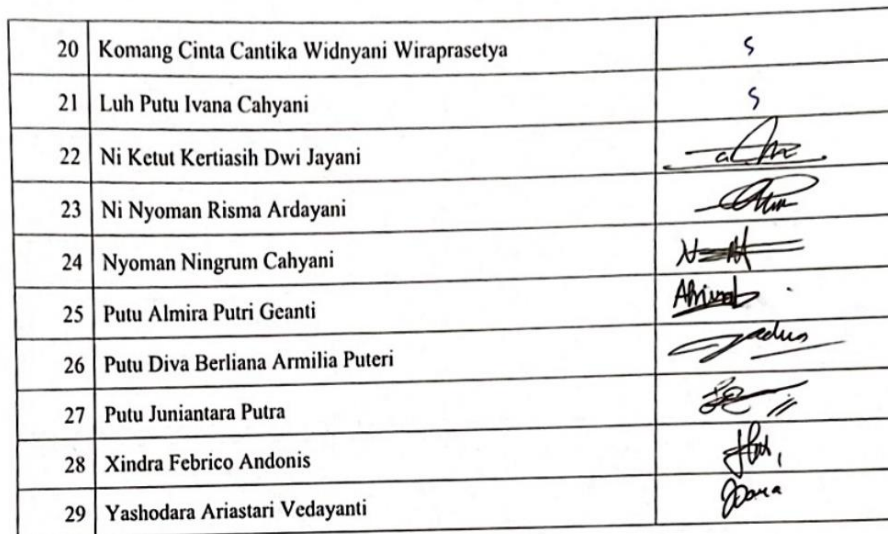 20 Komang Cinta Cantika Widnyani Wiraprasetya S
21 Luh Putu Ivana Cahyani S
22 Ni Ketut Kertiasih Dwi Jayani
23 Ni Nyoman Risma Ardayani
24 Nyoman Ningrum Cahyani
25 Putu Almira Putri Geanti
26 Putu Diva Berliana Armilia Puteri
27 Putu Juniantara Putra
28 Xindra Febrico Andonis
29 Yashodara Ariastari Vedayanti